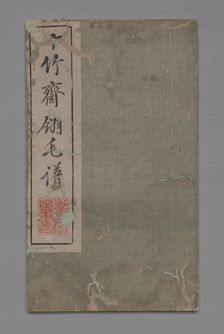 十竹齋翎毛譜